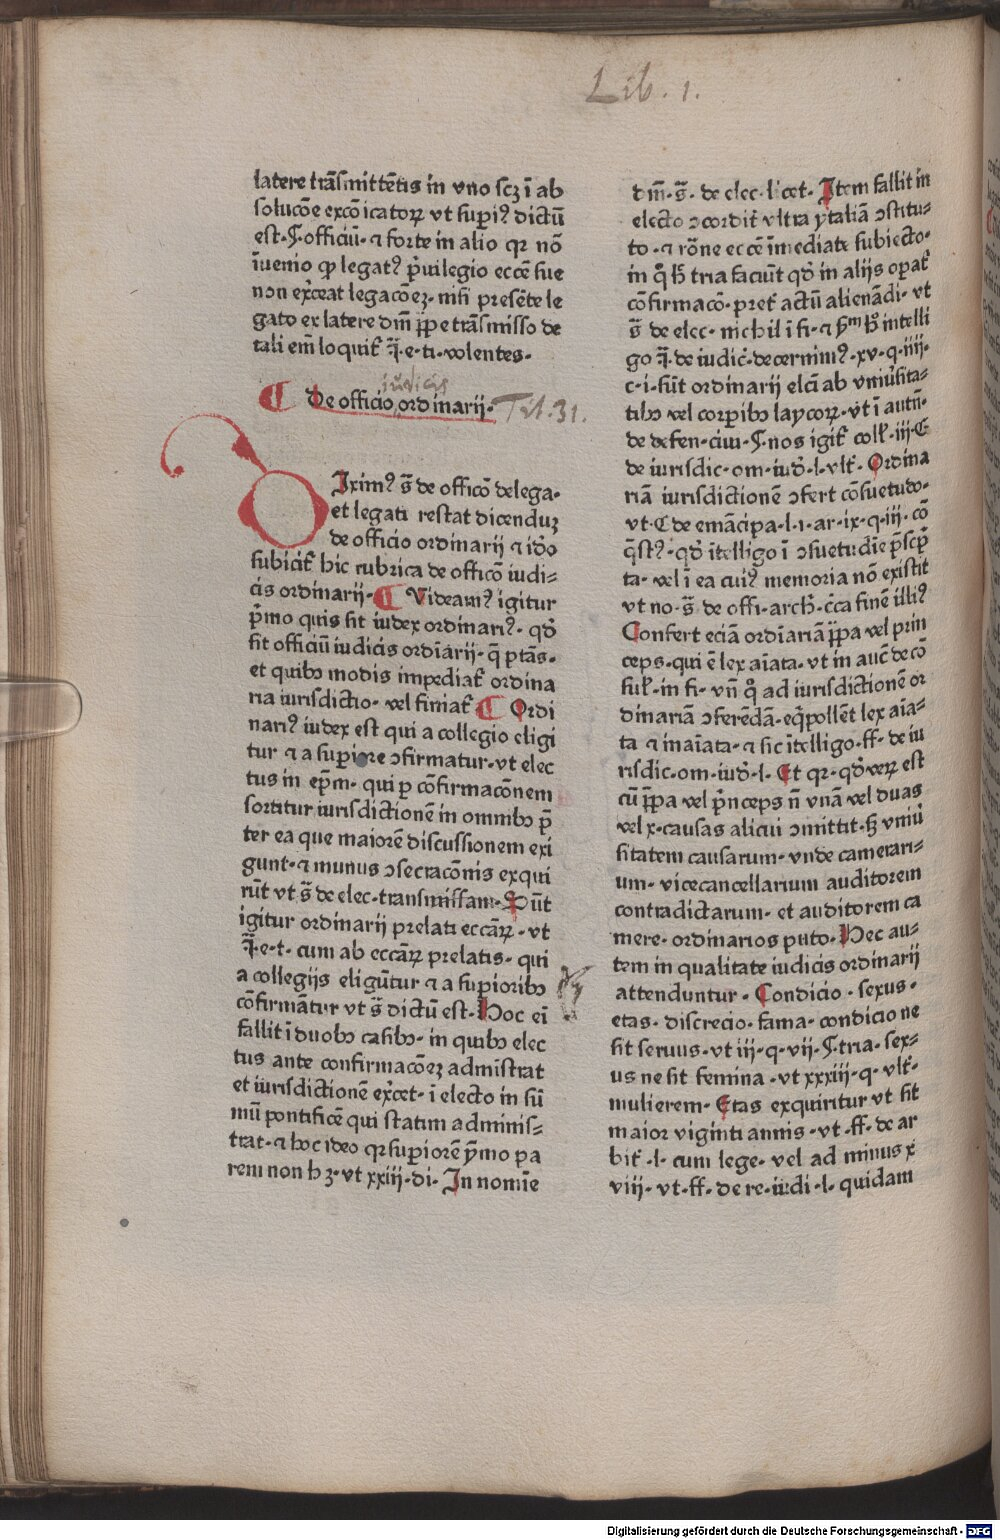 Lib. 1.
latere trãsmittẽtis in vno scʒ ĩ ab
solucõe excõicatorꝝ vt supiꝰ dictũ
est. ¶ officiũ. ⁊ forte in alio qꝛ nõ
ĩuenio ꝙ legatꝰ p̃uilegio eccẽ sue
non ex̃ceat legacõeʒ. nisi presẽte le
gato ex latere dñi p̃pe trãsmisso de
tali em̃ loquit᷑ q̃. e. ti. volentes.
iudicis
¶ De officio ordinarij. Tit. 31.
Iximꝰ s̃ de officõ delega.
et legati restat dicenduʒ
de officio ordinarij ⁊ id̃o
subicit᷑ hic rubrica de officõ iudi-
cis ordinarij. ¶ Videamꝰ igitur
p̃mo quis sit iudex ordinariꝰ. qd̃
sit officiũ iudicis ordĩarij. q̃ ptãs.
et quibꝫ modis impediat᷑ ordina
ria iurisdictio. vel finiat᷑ ¶ Ordi
nariꝰ iudex est qui a collegio eligi
tur ⁊ a supiore ɔfirmatur. vt elec
tus in ep̃m. qui p cõfirmacõnem
sortitur iurisdictionẽ in omnibꝫ p̃
ter ea que maiorẽ discussionem exi
gunt. ⁊ munus ɔsecracõnis exqui
rũt vt s̃ de elec. transmissam. Sũt
igitur ordinarij prelati eccãꝝ. vt
q̃. e. t. cum ab eccãꝝ prelatis. qui
a collegijs eligũtur ⁊ a supioribꝫ
cõfirmãtur vt s̃ dictũ est. Hoc ei̇̃
fallit ĩ duobꝫ casibꝫ. in quibꝫ elec
tus ante confirmacõeʒ admistrat
et iurisdictionẽ ex̃cet. ĩ electo in sũ
mũ pontificẽ qui statim adminis-
trat. ⁊ hoc ideo qꝛ supiorẽ ymo pa
rem non hʒ. vt xxiij. di. In nomĩe
d m̃. s̃. de elec. licet. Item fallit in
electo ɔcordit᷑ vltra ytaliã ɔstitu-
to. ⁊ rõne eccẽ ĩmediate subiecto.
in q̊ h̃ tria faciũt qd̃ in alijs opat᷑
cõfirmacõ. pret᷑ actũ alienãdi. vt
s̃ de elec. nichil ĩ fi. ⁊ p̃m h̊ intelli
go q̃. de iudic̃. decernimꝰ. xv. q. iiij.
c. i. sũt ordinarij elc̃i ab vniũsita-
tibꝫ vel corpibꝫ laycoꝝ. vt ĩ autñ.
de defen. ciui. ¶ nos igit᷑ coll̃. iij. C
de iurisdic. om. iud̃. l. vlt᷑. Ordina
riã iurisdictionẽ ɔfert cõsuetudo.
vt. C de emãcipa. l. 1. ar. ix. q. iij. cõ
q̃stꝰ. qd̃ ĩtelligo ĩ ɔsuetudĩe p̃scp̃
ta. vel ĩ ea cuiꝰ memoria nõ existit
vt no. s̃. de offi. arch̃. c̃ca finẽ illiꝰ
Confert eciã ordĩariã p̃pa vel prin
ceps. qui ẽ lex aĩata. vt in auc̃ de cõ
sul̃. in fi. vñ q̊ ad iurisdictionẽ or
dinariã ɔferẽdã. eq̃pollẽt lex aĩa-
ta ⁊ inaĩata. ⁊ sic ĩtelligo. ff. de iu
risdic. om. iud̃. l. Et qꝛ. qd̃ veꝝ est
cũ p̃pa vel p̃nceps ñ vnã vel duas
vel x. causas alicui ɔmittit. sʒ vniũ
sitatem causarum. vnde camerari-
um. vicecancellarium auditorem
contradictarum. et auditorem ca
mere. ordinarios puto. Hec au-
tem in qualitate iudicis ordinarij
attenduntur. Condicio. sexus.
etas. discrecio. fama. condicione
sit seruus. vt iij. q. vij. ¶ tria. sex-
us ne sit femina. vt xxxiij. q. vlt᷑.
mulierem. Etas exquiritur vt sit
maior viginti annis. vt. ff. de ar
bit᷑. l. cum lege. vel ad minus x
viij. vt. ff. de re. iudi. l. quidam
Digitalisierung gefördert durch die Deutsche Forschungsgemeinschaft - DFG